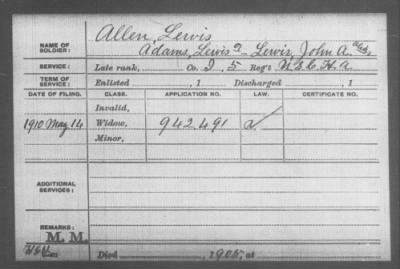 Allen, Lewis
NAME OF SOLDIER: Adams, Lewis Lewis, John A.
SERVICE: Late rank, Co. I, 5 Reg't U.S.C.H.A.
TERM OF SERVICE: Enlisted , 1 Discharged , 1
DATE OF FILING. CLASS. APPLICATION NO. LAW. CERTIFICATE NO.
Invalid,
1910 May 14 Widow, 942.491
Minor,
ADDITIONAL SERVICES:
REMARKS:
M. M.
Died , 1905, at